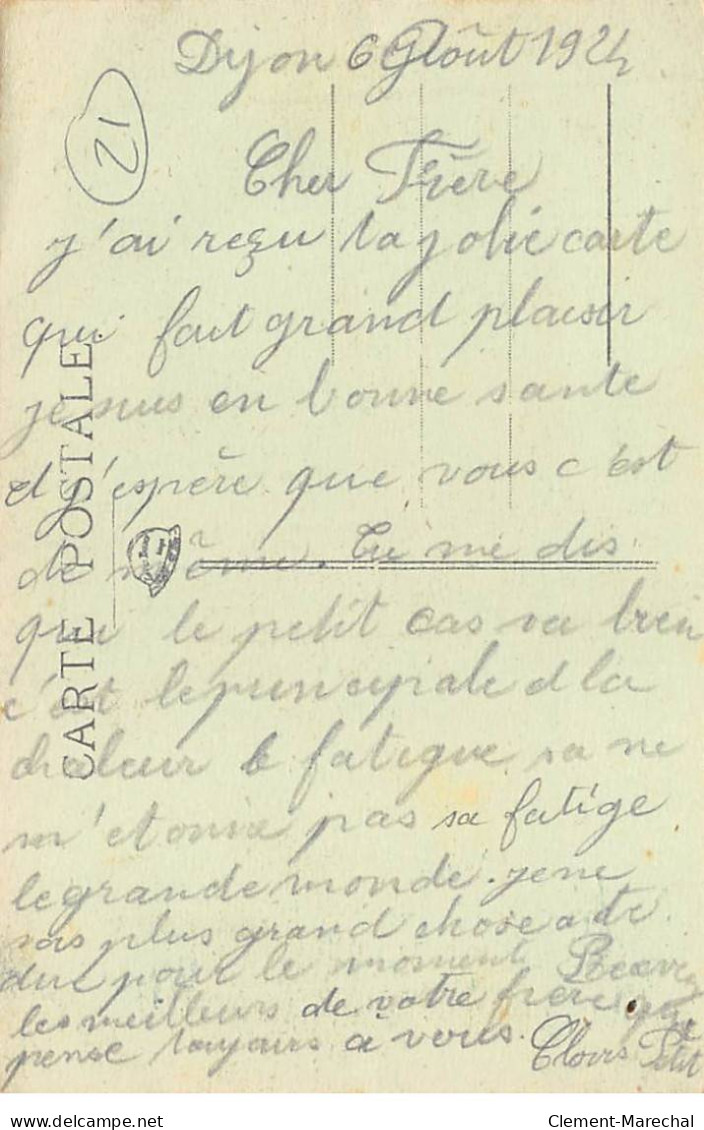 Dijon 6 Août 1924
21
Cher Frère
j'ai reçu ta jolie carte
qui fait grand plaisir
je suis en bonne sante
et j'espère que vous c'est
de même. Tu me dis
que le petit cas va bien
c'est le principale d la
chaleur le fatigue sa ne
m'etonne pas sa fatige
le grande monde. je ne
sais plus grand chose a te
dire pour le moment Recevez
les meilleurs de votre frère qui
pense toujours a vous. Clovis Petit
CARTE POSTALE
Clement-Marechal
delcampe.net